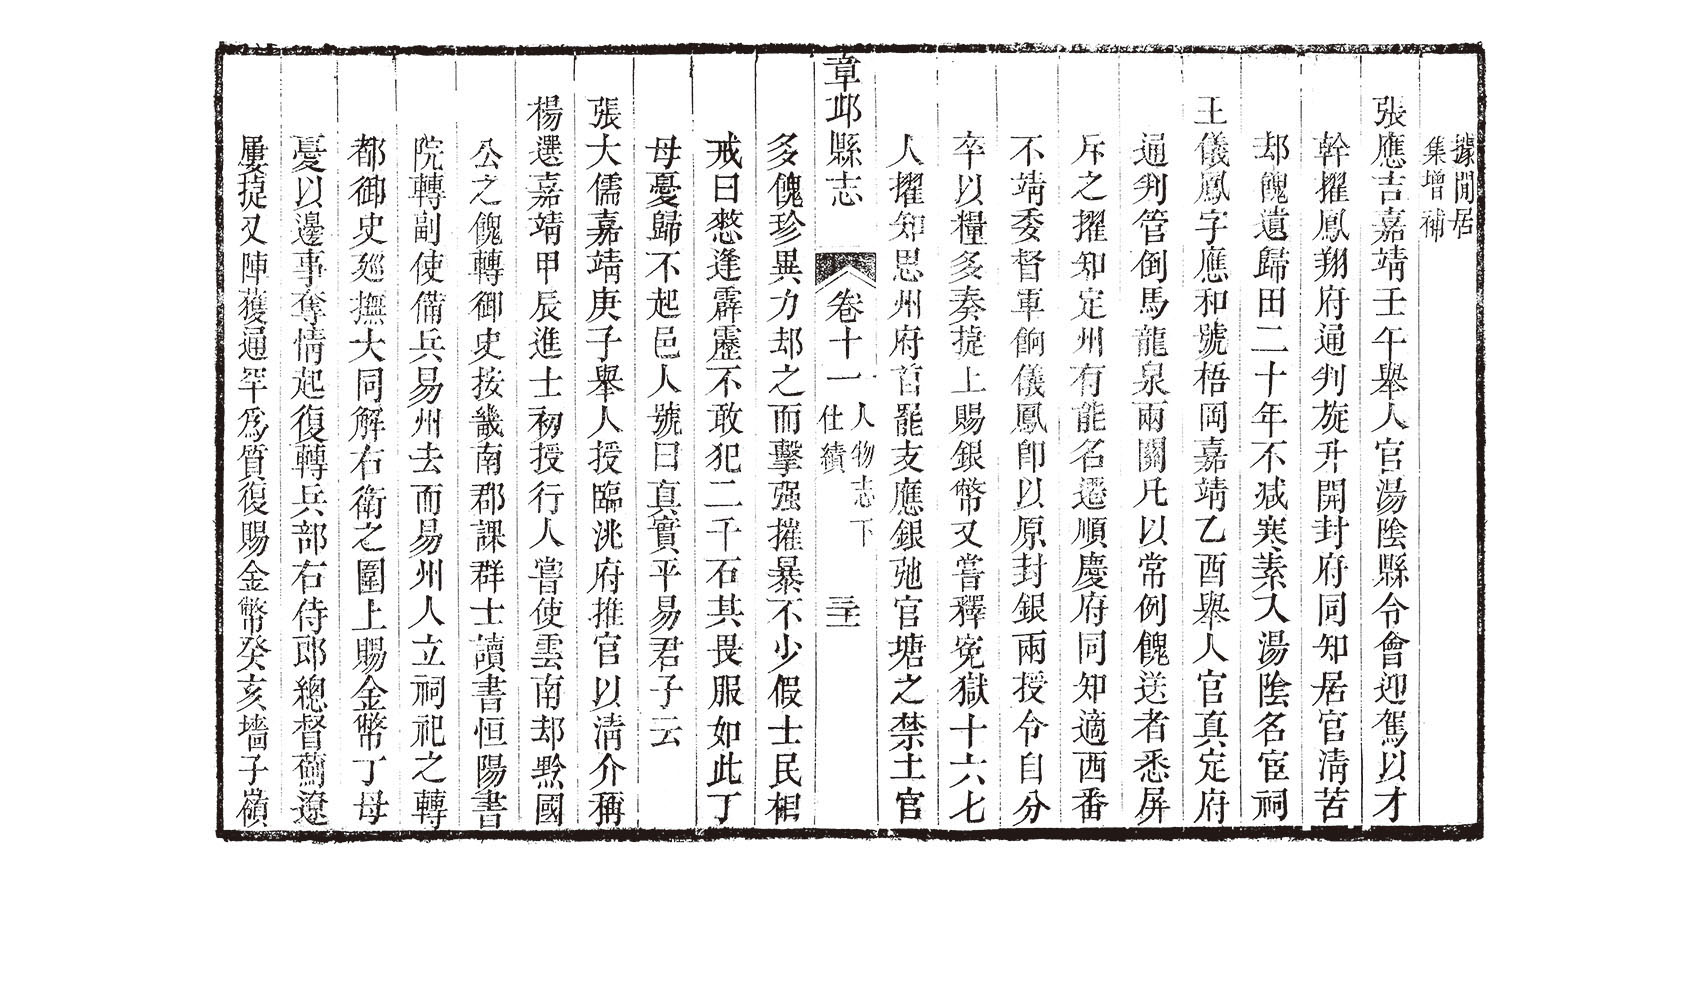 據閒居
集增補
張應吉嘉靖壬午舉人官湯陰縣令會迎駕以才
幹擢鳳翔府通判旋升開封府同知居官淸苦
却餽遺歸田二十年不減寒素入湯陰名宦祠
王儀鳳字應和號梧岡嘉靖乙酉舉人官真定府
通判管倒馬龍泉兩關凡以常例餽送者悉屏
斥之擢知定州有能名遷順慶府同知適西番
不靖委督軍餉儀鳳卽以原封銀兩授令自分
卒以糧多奏捷上賜銀幣又嘗釋冤獄十六七
人擢知思州府首罷支應銀弛官塘之禁土官
章邱縣志
卷十一
人物志下
仕績
三十
多餽珍異力却之而擊强摧暴不少假士民相
戒曰慭逢霹靂不敢犯二千石其畏服如此丁
母憂歸不起邑人號曰真實平易君子云
張大儒嘉靖庚子舉人授臨洮府推官以淸介稱
楊選嘉靖甲辰進士初授行人嘗使雲南却黔國
公之餽轉御史按畿南郡課群士讀書恒陽書
院轉副使備兵易州去而易州人立祠祀之轉
都御史廵撫大同解右衛之圍上賜金幣丁母
憂以邊事奪情起復轉兵部右侍郎總督薊遼
屢㨗又陣獲通罕爲質復賜金幣癸亥墻子嶺